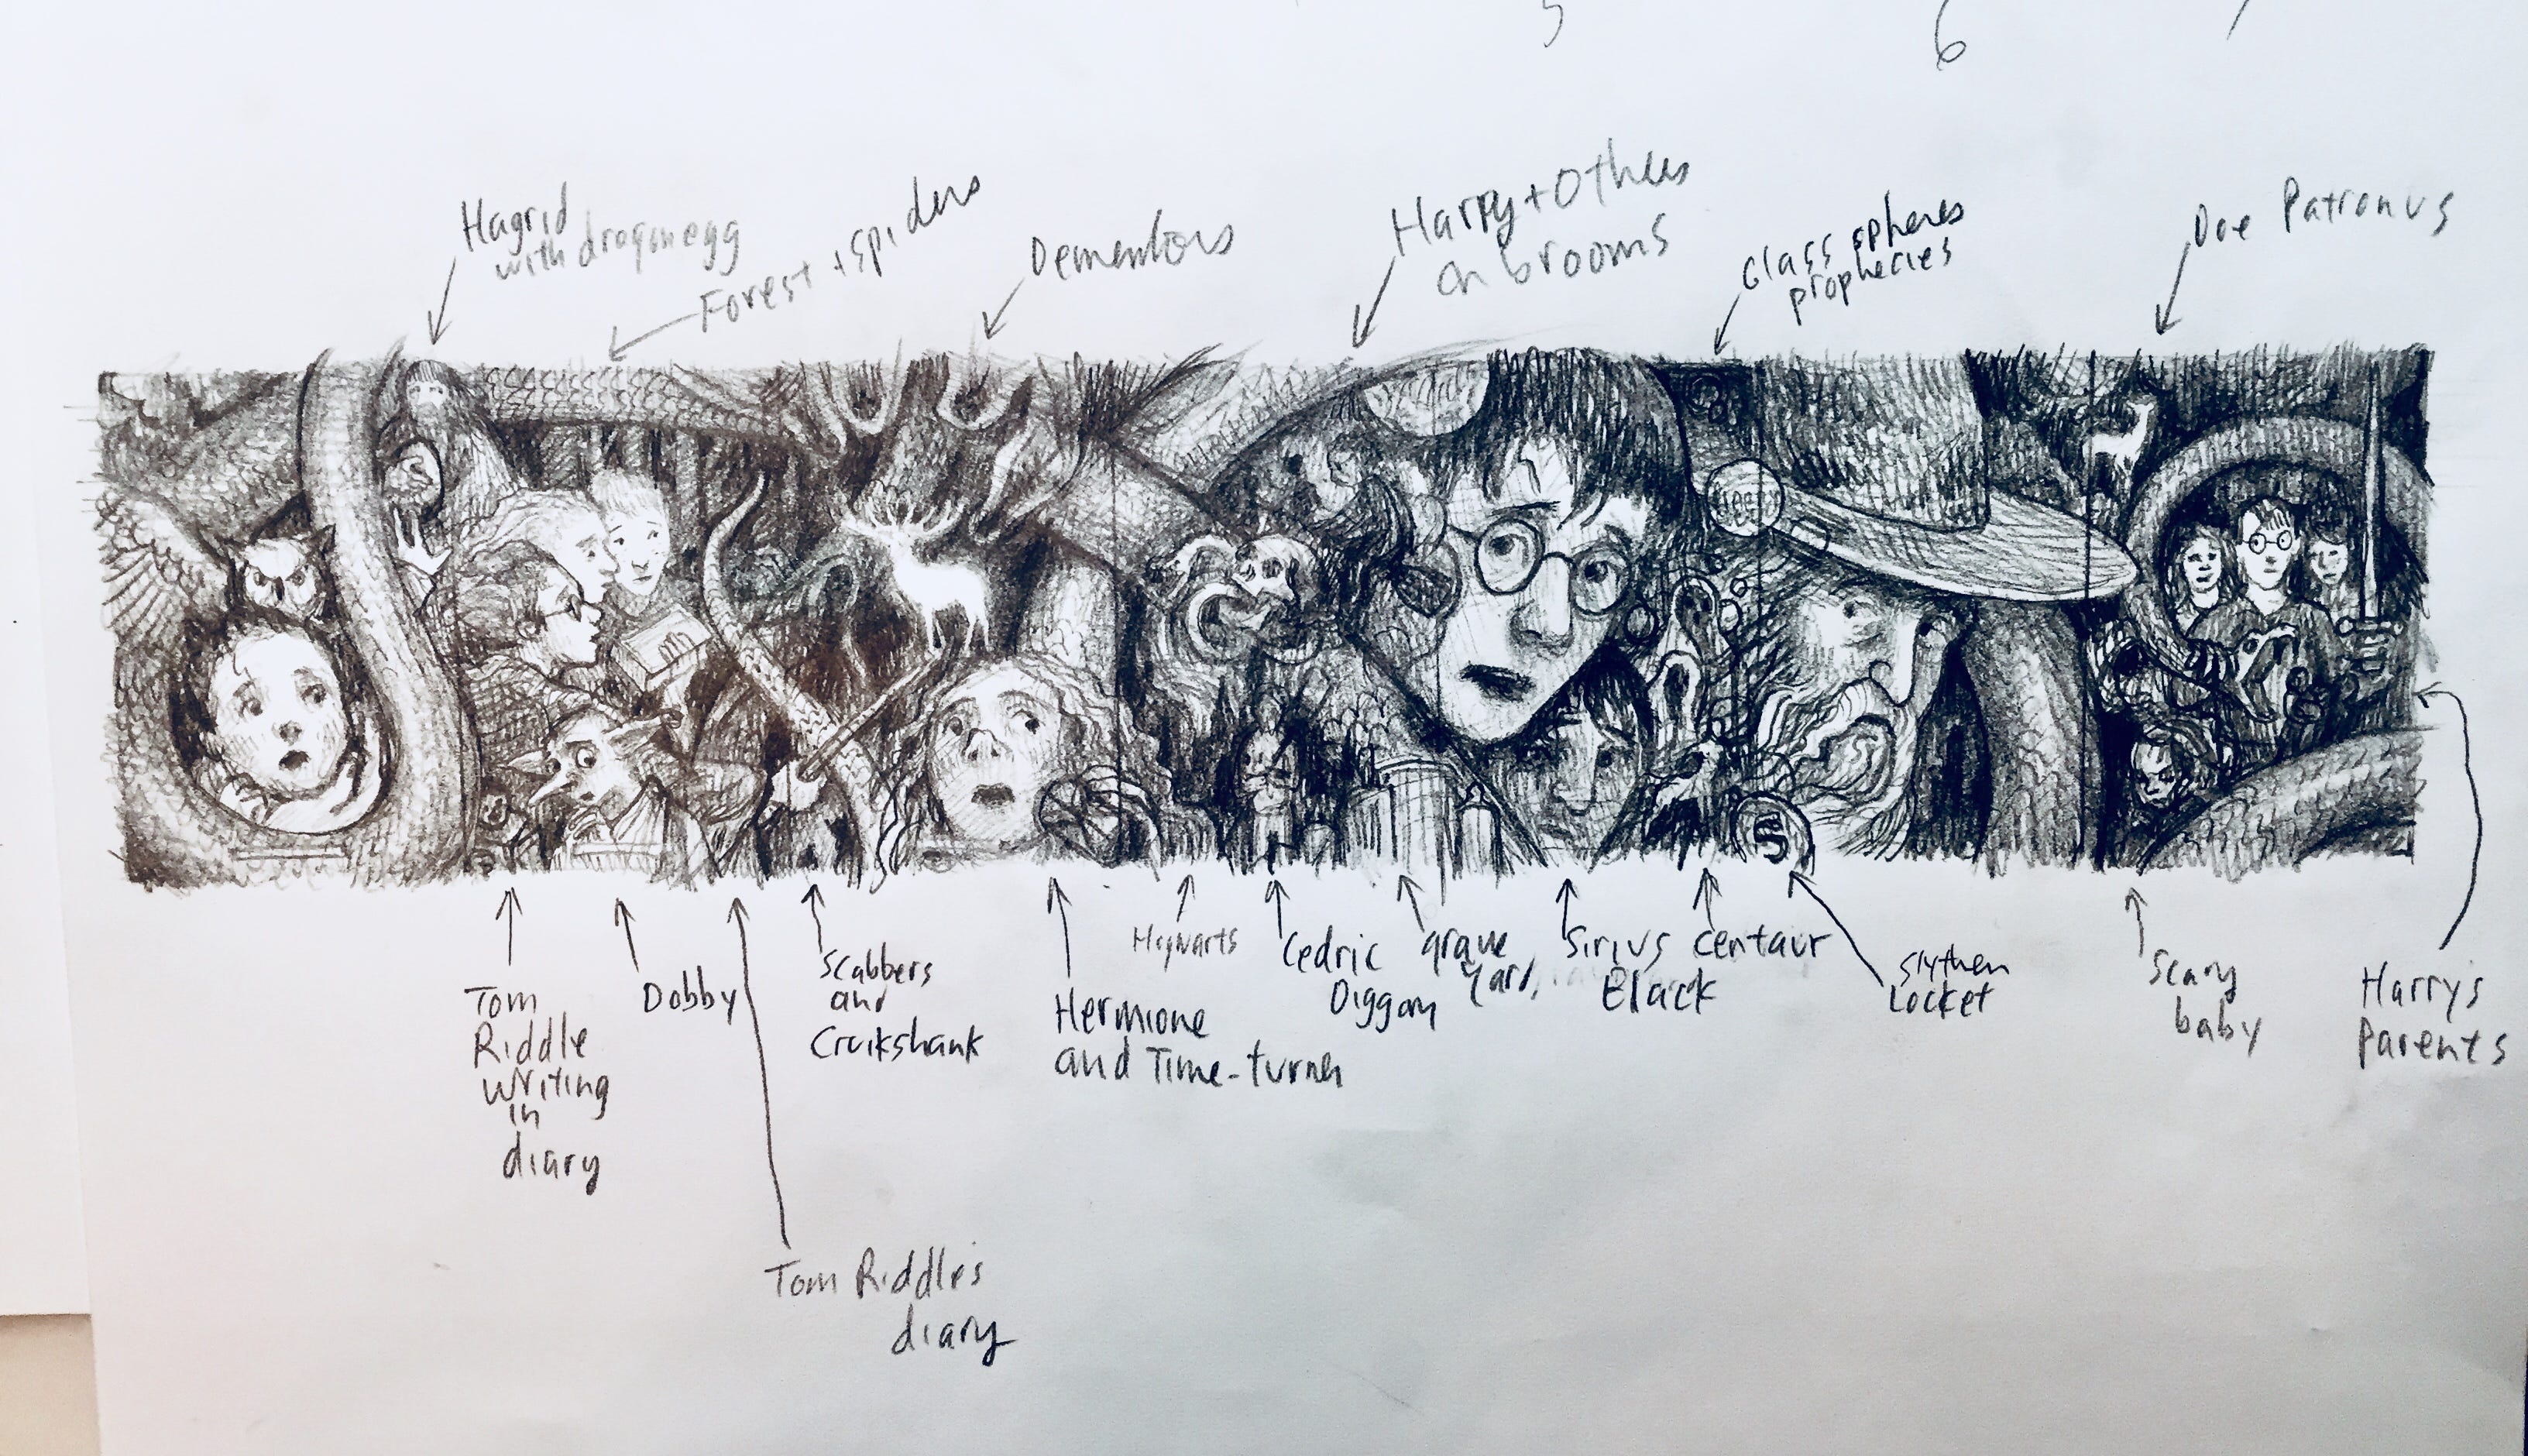 5
6
7
Hagrid
with dragon egg
Forest + spiders
Dementors
Harry + Others
on brooms
Glass spheres
prophecies
Doe Patronus
Harry
S
Tom
Riddle
writing
in
diary
Dobby
Tom Riddle's
diary
Scabbers
and
Crvikshank
Hermione
and Time-turner
Hogwarts
Cedric
Diggory
grave
yard
Sirius
Black
Centaur
Slytherin
Locket
Scary
baby
Harry's
Parents